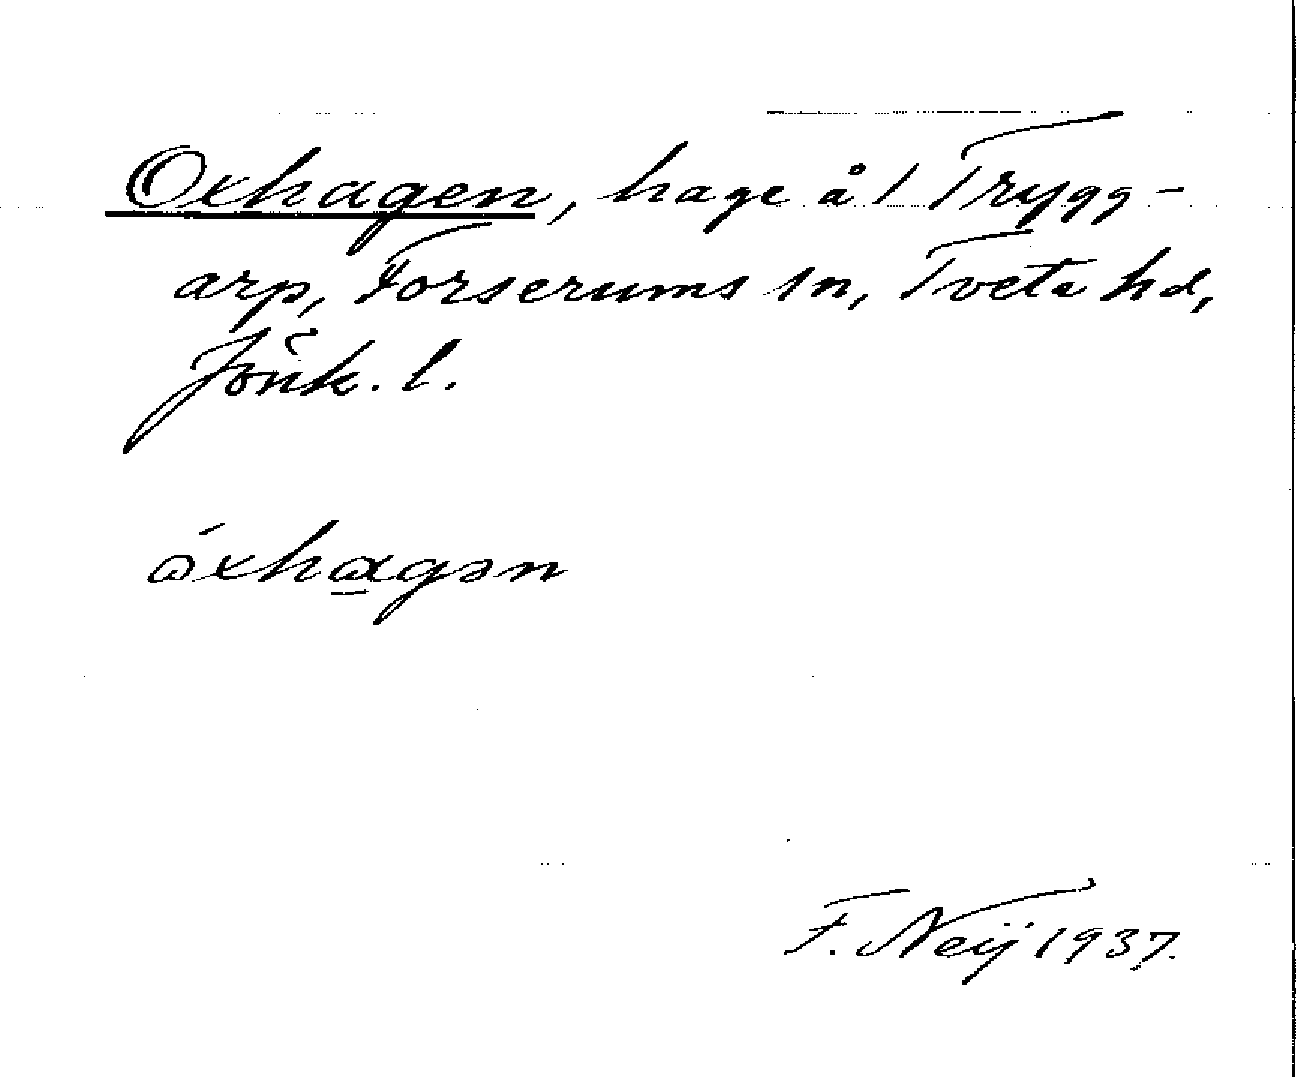 Oxhagen, hage å 1 Trygg-
arp, Forserums sn, Tveta hd,
Jönk. l.
óxhagən
F. Neij 1937.